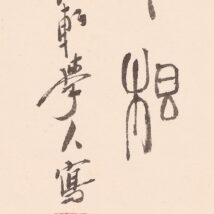 相
軒學人寫